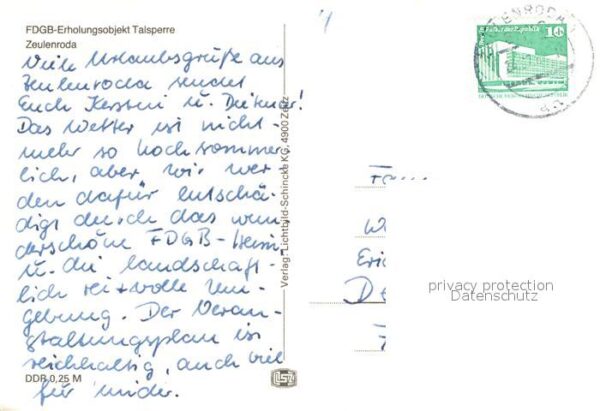 FDGB-Erholungsobjekt Talsperre
Zeulenroda
Viele Urlaubsgrüße aus
Zeulenroda sendet
Euch Kerstin u. Dietmar!
Das Wetter ist nicht
mehr so hochsommer
lich, aber wir wer-
den dafür entschä-
digt durch das wun
derschöne FDGB-Heim
u. die landschaft-
lich reizvolle Um-
gebung. Der Veran-
staltungsplan ist
reichhaltig, auch viel
für Kinder.
DDR 0,25 M
Verlag: Lichtbild-Schincke KG, 4900 Zeitz
10
privacy protection
Datenschutz